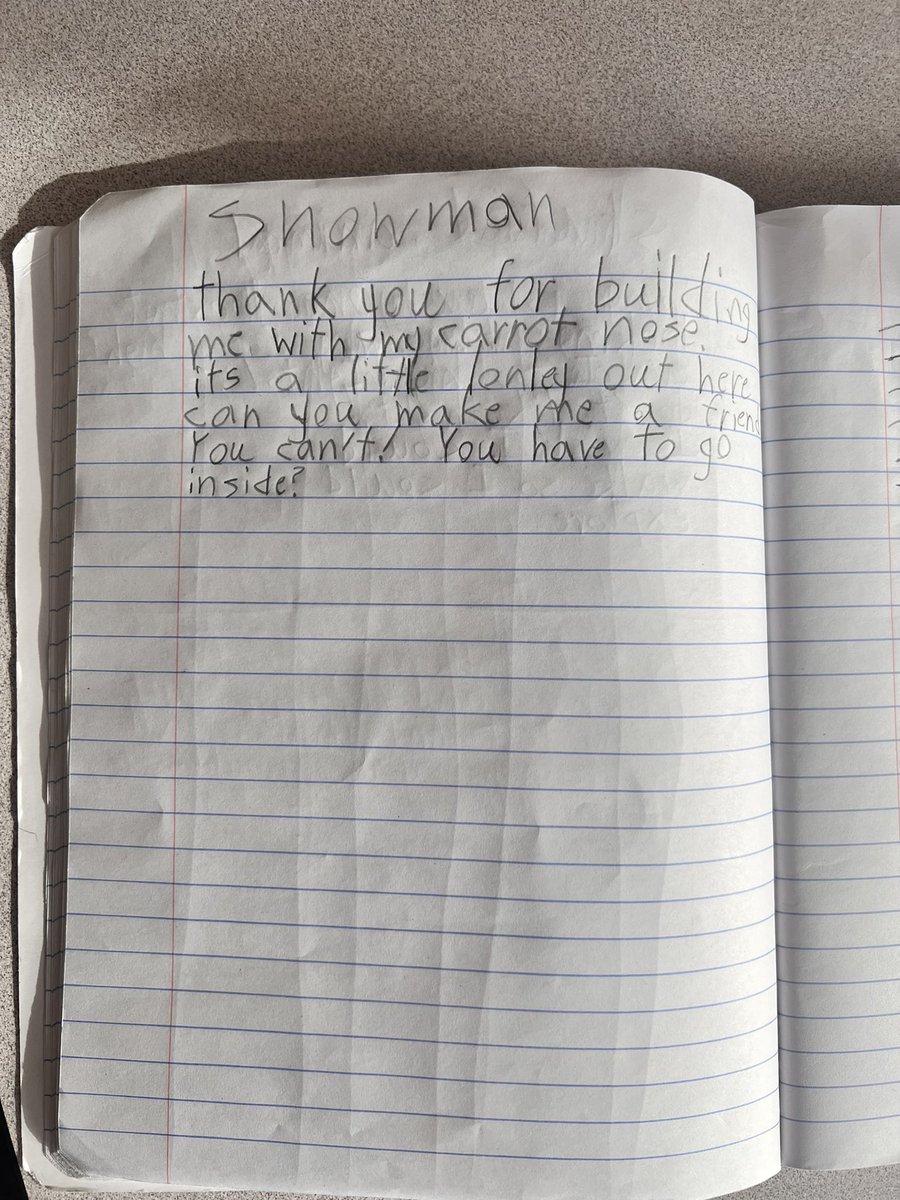 Snowman
thank you for building
me with my carrot nose.
its a little lonley out here
can you make me a friend
You can't! You have to go
inside?